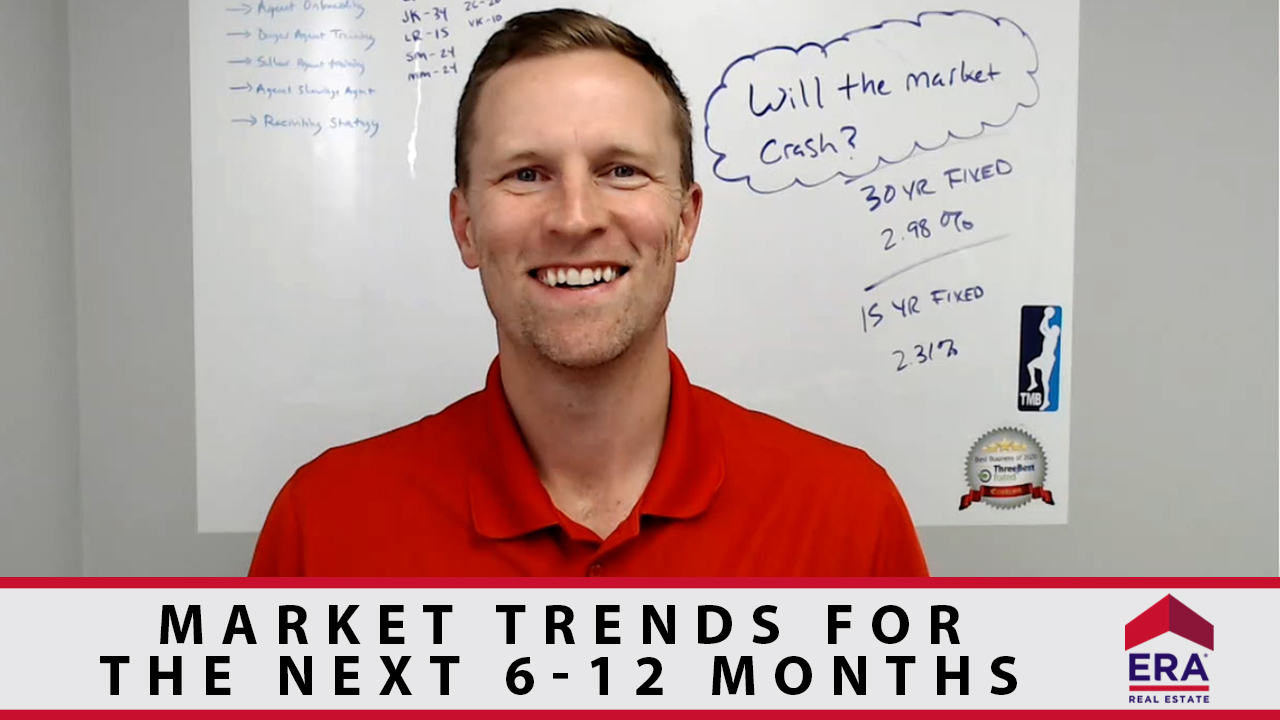 → Agent Onboarding
→ Buyer Agent Training
→ Seller Agent training
→ Agent Showings Agent
→ Recruiting Strategy
JK-34
LR-15
SM-24
MM-24
VK-10
Will the market
crash?
30 YR FIXED
2.98%
15 YR FIXED
2.31%
TMB
Best Business of 2020
ThreeBest
Rated
MARKET TRENDS FOR
THE NEXT 6-12 MONTHS
ERA®
REAL ESTATE